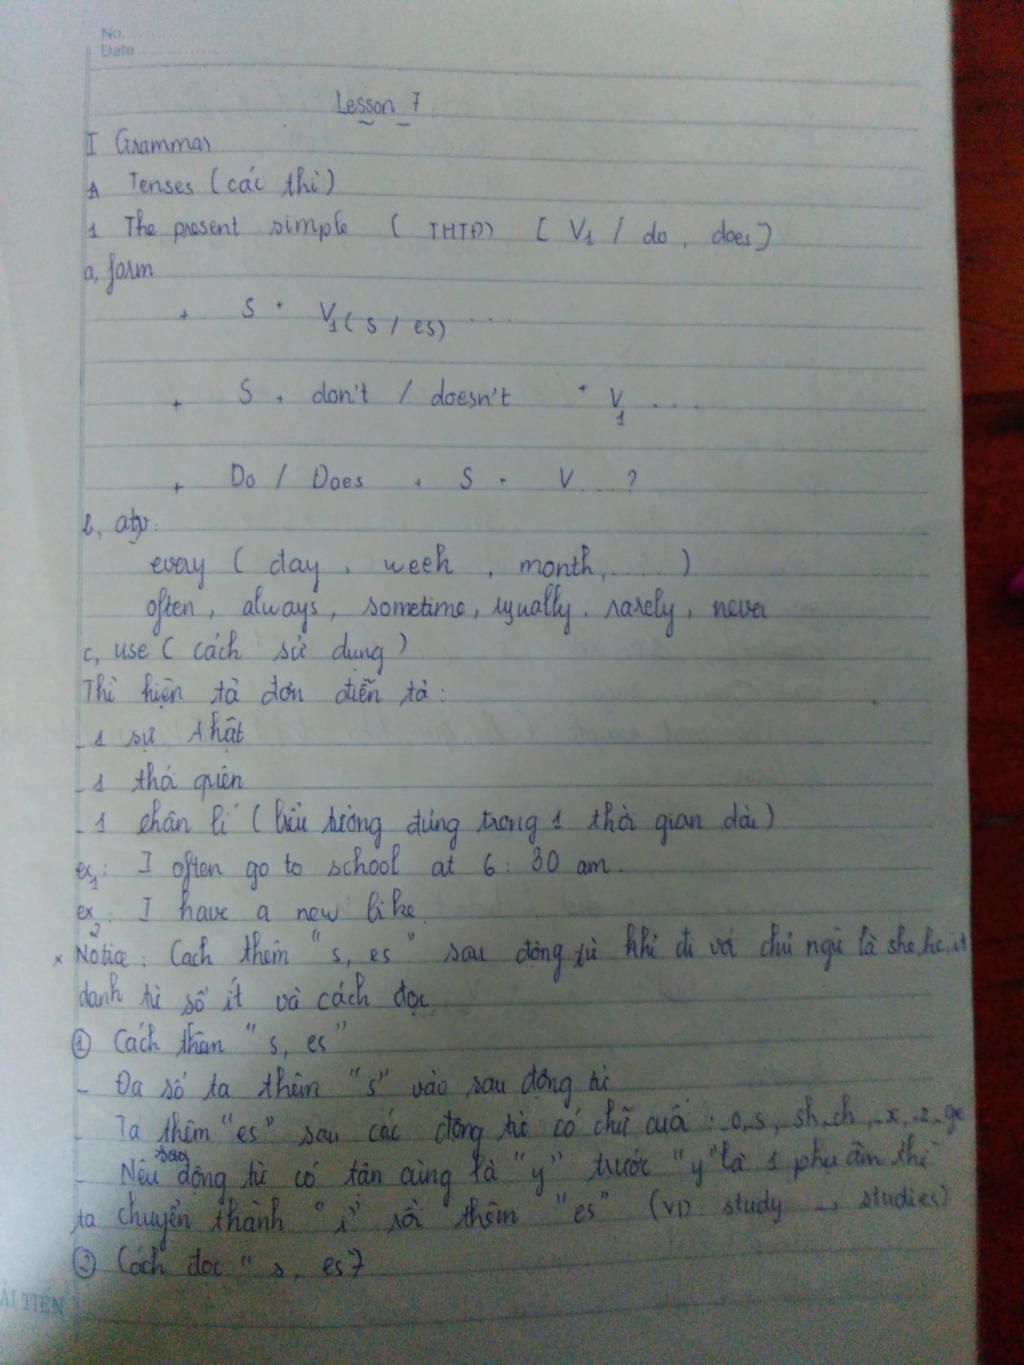 No.
Date
Lesson 7
I Grammar
A Tenses (các thì)
1 The present simple ( THTĐ) [ V1 / do, does]
a, form
+ S + V1 (s / es) ...
+ S + don't / doesn't + V1 ...
+ Do / Does + S + V ... ?
b,
every ( day, week, month, ... )
often, always, sometime, usually, rarely, never
c, use ( cách sử dụng )
Thì hiện tả đơn diễn tả :
- 1 sự thật
- 1 thó quên
- 1 chân lí ( đúng trong 1 thời gian dài )
ex1 : I often go to school at 6 : 30 am.
ex2 : I have a new bike.
x Notice : Cach thêm " s, es " sau động từ khi đi với chủ ngữ là she, he, it
danh từ số ít và cách đọc
① Cách thêm " s, es "
- Đa số ta thêm " s " vào sau động từ
- Ta thêm " es " sau các động từ có chữ cuối : -o, s, sh, ch, -x, -z, -ge
- Nếu động từ có tân cùng là " y " trước " y " là 1 phụ âm thì
ta chuyển thành " i " rồi thêm " es " (VD : study → studies)
② Cách đọc " s, es 7
ẢI TIẾN